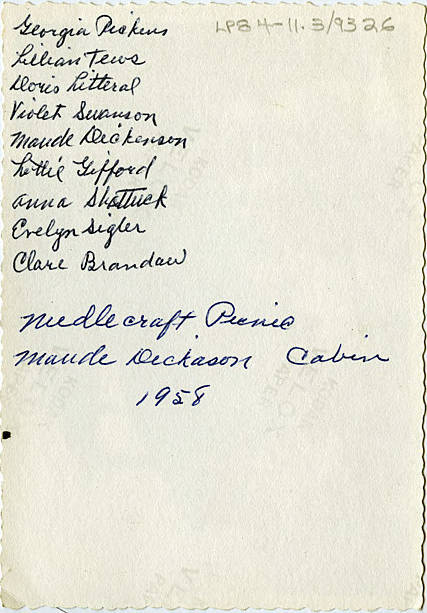 LP84-11.3/9326
Georgia Pickens
Lilian Tews
Doris Litteral
Violet Swanson
Maude Dickenson
Lottie Gifford
Anna Shattuck
Evelyn Sigler
Clare Brandaw
Needlecraft Picnic
Maude Dickason Cabin
1958